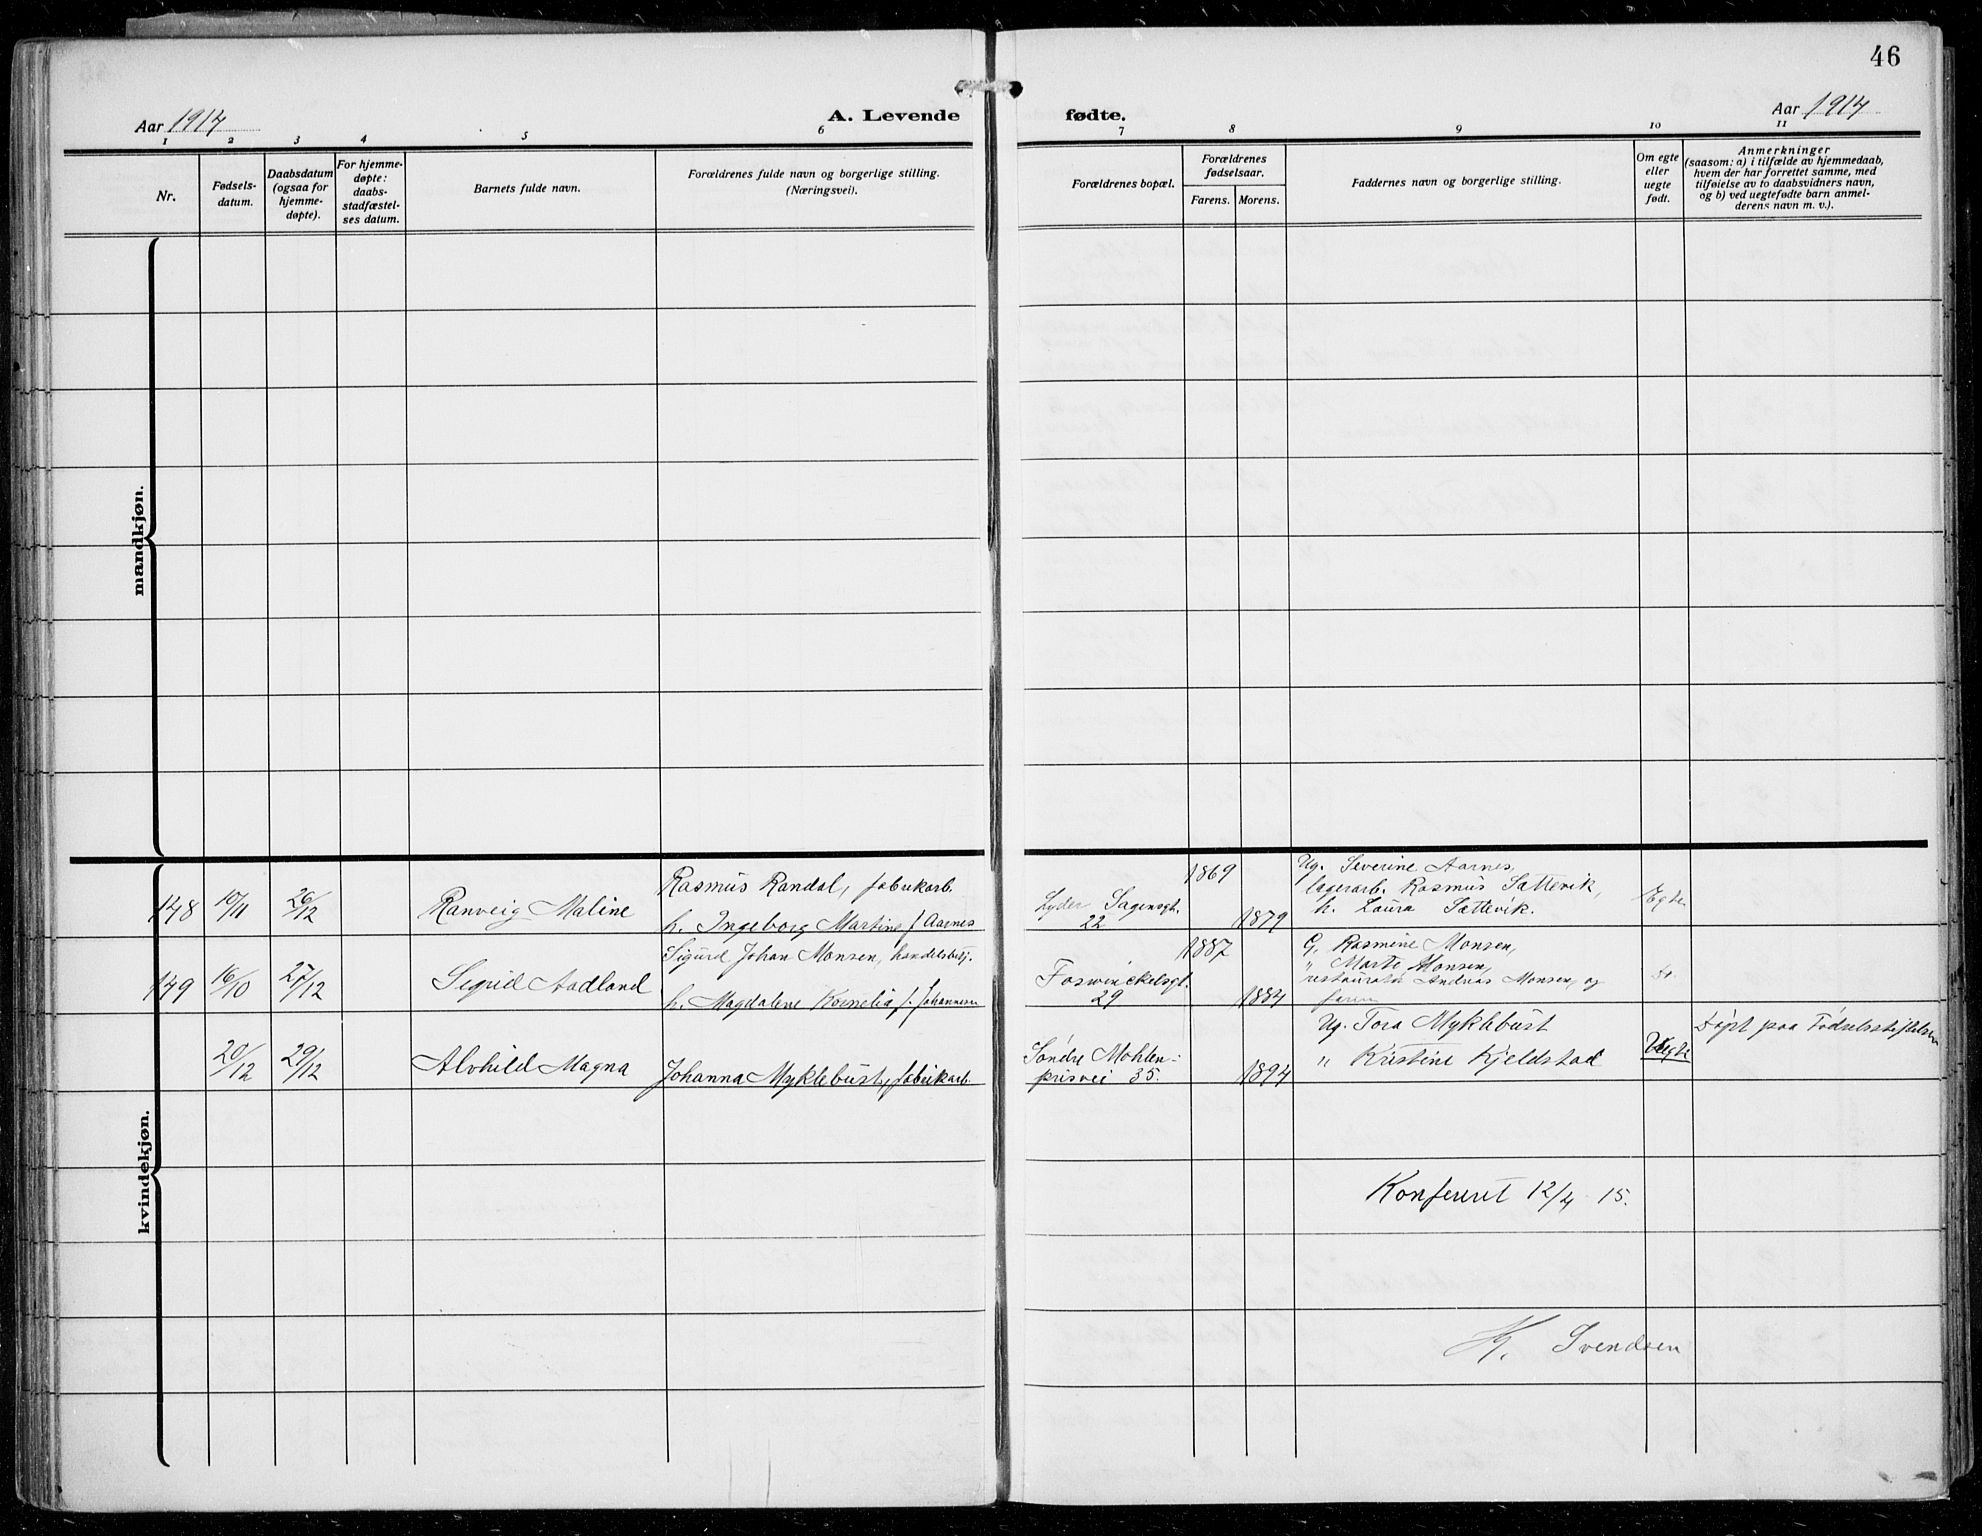 46
Aar 1914
A. Levende fødte.
Aar 1914
1 2 3 4 5 6 7 8 9 10 11
Nr.
Fødsels-
datum.
Daabsdatum
(ogsaa for
hjemme-
døpte).
For hjemme-
døpte:
daabs-
stadfæstel-
ses datum.
Barnets fulde navn.
Forældrenes fulde navn og borgerlige stilling.
(Næringsvei).
Forældrenes bopæl.
Forældrenes
fødselsaar.
Farens. Morens.
Faddernes navn og borgerlige stilling.
Om egte
eller
uegte
født.
Anmerkninger
(saasom: a) i tilfælde av hjemmedaab,
hvem der har forrettet samme, med
tilføielse av to daabsvidners navn,
og b) ved uegtefødte barn anmel-
derens navn m. v.).
mandkjøn.
kvindekjøn.
148
10/11
26/12
Ranveig Maline
Rasmus Randal, fabrikarb.
h. Ingeborg Martine f. Aarnes
Lyder Sagensgt.
22
1869
1879
Ug. Severine Aarnes,
lagerarb. Rasmus Sættevik,
h. Laura Sættevik.
Egte
149
16/10
27/12
Sigrid Aadland
Sigurd Johan Monsen, handelsbetj.
h. Magdalene Kornelia f. Johannesen
Foswinckelsgt.
29
1887
1884
G. Rasmine Monsen,
" Marte Monsen,
restauratør Andreas Monsen, og
faren
20/12
29/12
Alvhild Magna
Johanna Myklebust, fabrikarb.
Søndre Møhlen-
prisvei 35.
1894
Ug. Tora Myklebust
" Kristine Kjeldstad
Uegte
Døpt paa Fødselsstiftelsen
Konferert 12/4 15.
K. Svendsen